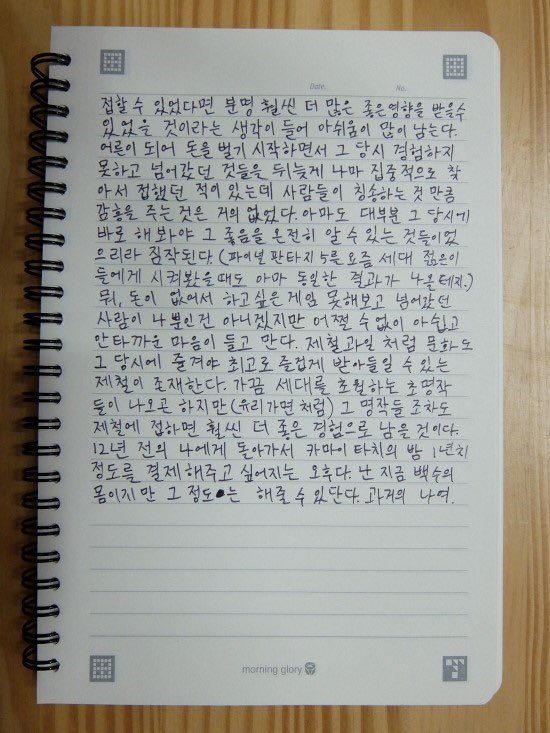 Date.
No.
접할 수 있었다면 분명 훨씬 더 많은 좋은영향을 받을수
있었을 것이라는 생각이 들어 아쉬움이 많이 남는다.
어른이 되어 돈을 벌기 시작하면서 그 당시 경험하지
못하고 넘어갔던 것들을 뒤늦게 나마 집중적으로 찾
아서 접했던 적이 있는데 사람들이 칭송하는 것 만큼
감흥을 주는 것은 거의 없었다. 아마도 대부분 그 당시에
바로 해 봐야 그 좋음을 온전히 알 수 있는 것들이었
으리라 짐작된다 (파이널 판타지 5를 요즘 세대 젊은이
들에게 시켜봤을때도 아마 동일한 결과가 나올테지.)
뭐, 돈이 없어서 하고싶은 게임 못해보고 넘어갔던
사람이 나 뿐인건 아니겠지만 어쩔 수 없이 아쉽고
안타까운 마음이 들고 만다. 제철 과일 처럼 문화도
그 당시에 즐겨야 최고로 즐겁게 받아들일 수 있는
제철이 존재한다. 가끔 세대를 초월하는 초명작
들이 나오곤 하지만 (유리가면 처럼) 그 명작들 조차도
제철에 접하면 훨씬 더 좋은 경험으로 남을 것이다.
12년 전의 나에게 돌아가서 카마이타치의 밤 1년치
정도를 결제해주고 싶어지는 오후다. 난 지금 백수의
몸이지만 그 정도는 해줄 수 있단다. 과거의 나여.
morning glory